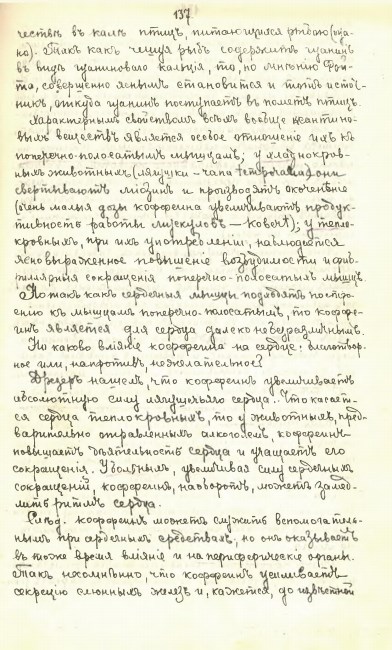 137
чествѣ въ калѣ птицъ, питающихся рыбою (гуа-
но). Такъ какъ чешуя рыбъ содержитъ гуанинъ
въ видѣ гуаниноваго кальція, то, по мнѣнію Фой-
та, совершенно яснымъ становится и тотъ источ-
никъ, откуда гуанинъ поступаетъ въ пометъ птицъ.
Характернымъ свойствомъ всѣхъ вообще ксантино-
выхъ веществъ является особое отношеніе ихъ къ
поперечно-полосатымъ мышцамъ; у хладнокров-
ныхъ животныхъ (лягушки – rana temporaria) они
свертываютъ міозинъ и производятъ окоченѣніе
(очень малыя дозы кофеина увеличиваютъ продук-
тивность работы мускуловъ — Kobert); у тепло-
кровныхъ, при ихъ употребленіи, наблюдается
ясно выраженное повышеніе возбудимости и фиб-
риллярныя сокращенія поперечно-полосатыхъ мышцъ.
Но такъ какъ сердечныя мышцы подходятъ по строе-
нію къ мышцамъ поперечно-полосатымъ, то коффе-
инъ является для сердца далеко небезразличнымъ.
Но каково вліяніе коффеина на сердце: благотвор-
ное или, напротивъ, нежелательное?
Дрезеръ нашелъ, что коффеинъ увеличиваетъ
абсолютную силу лягушечьяго сердца. Что касает-
ся сердца теплокровныхъ, то у животныхъ, пред-
варительно отравленныхъ алкоголемъ, коффеинъ
повышаетъ дѣятельность сердца и учащаетъ его
сокращенія. У больныхъ, увеличивая силу сердечныхъ
сокращеній, коффеинъ, наоборотъ, можетъ замед-
лить ритмъ сердца.
Слѣд. коффеинъ можетъ служить вспомогатель-
нымъ при сердечныхъ средствахъ, но онъ оказываетъ
въ тоже время вліяніе и на периферическіе органы.
Такъ несомнѣнно, что коффеинъ усиливаетъ
секрецію слюнныхъ железъ и, кажется, до извѣстной